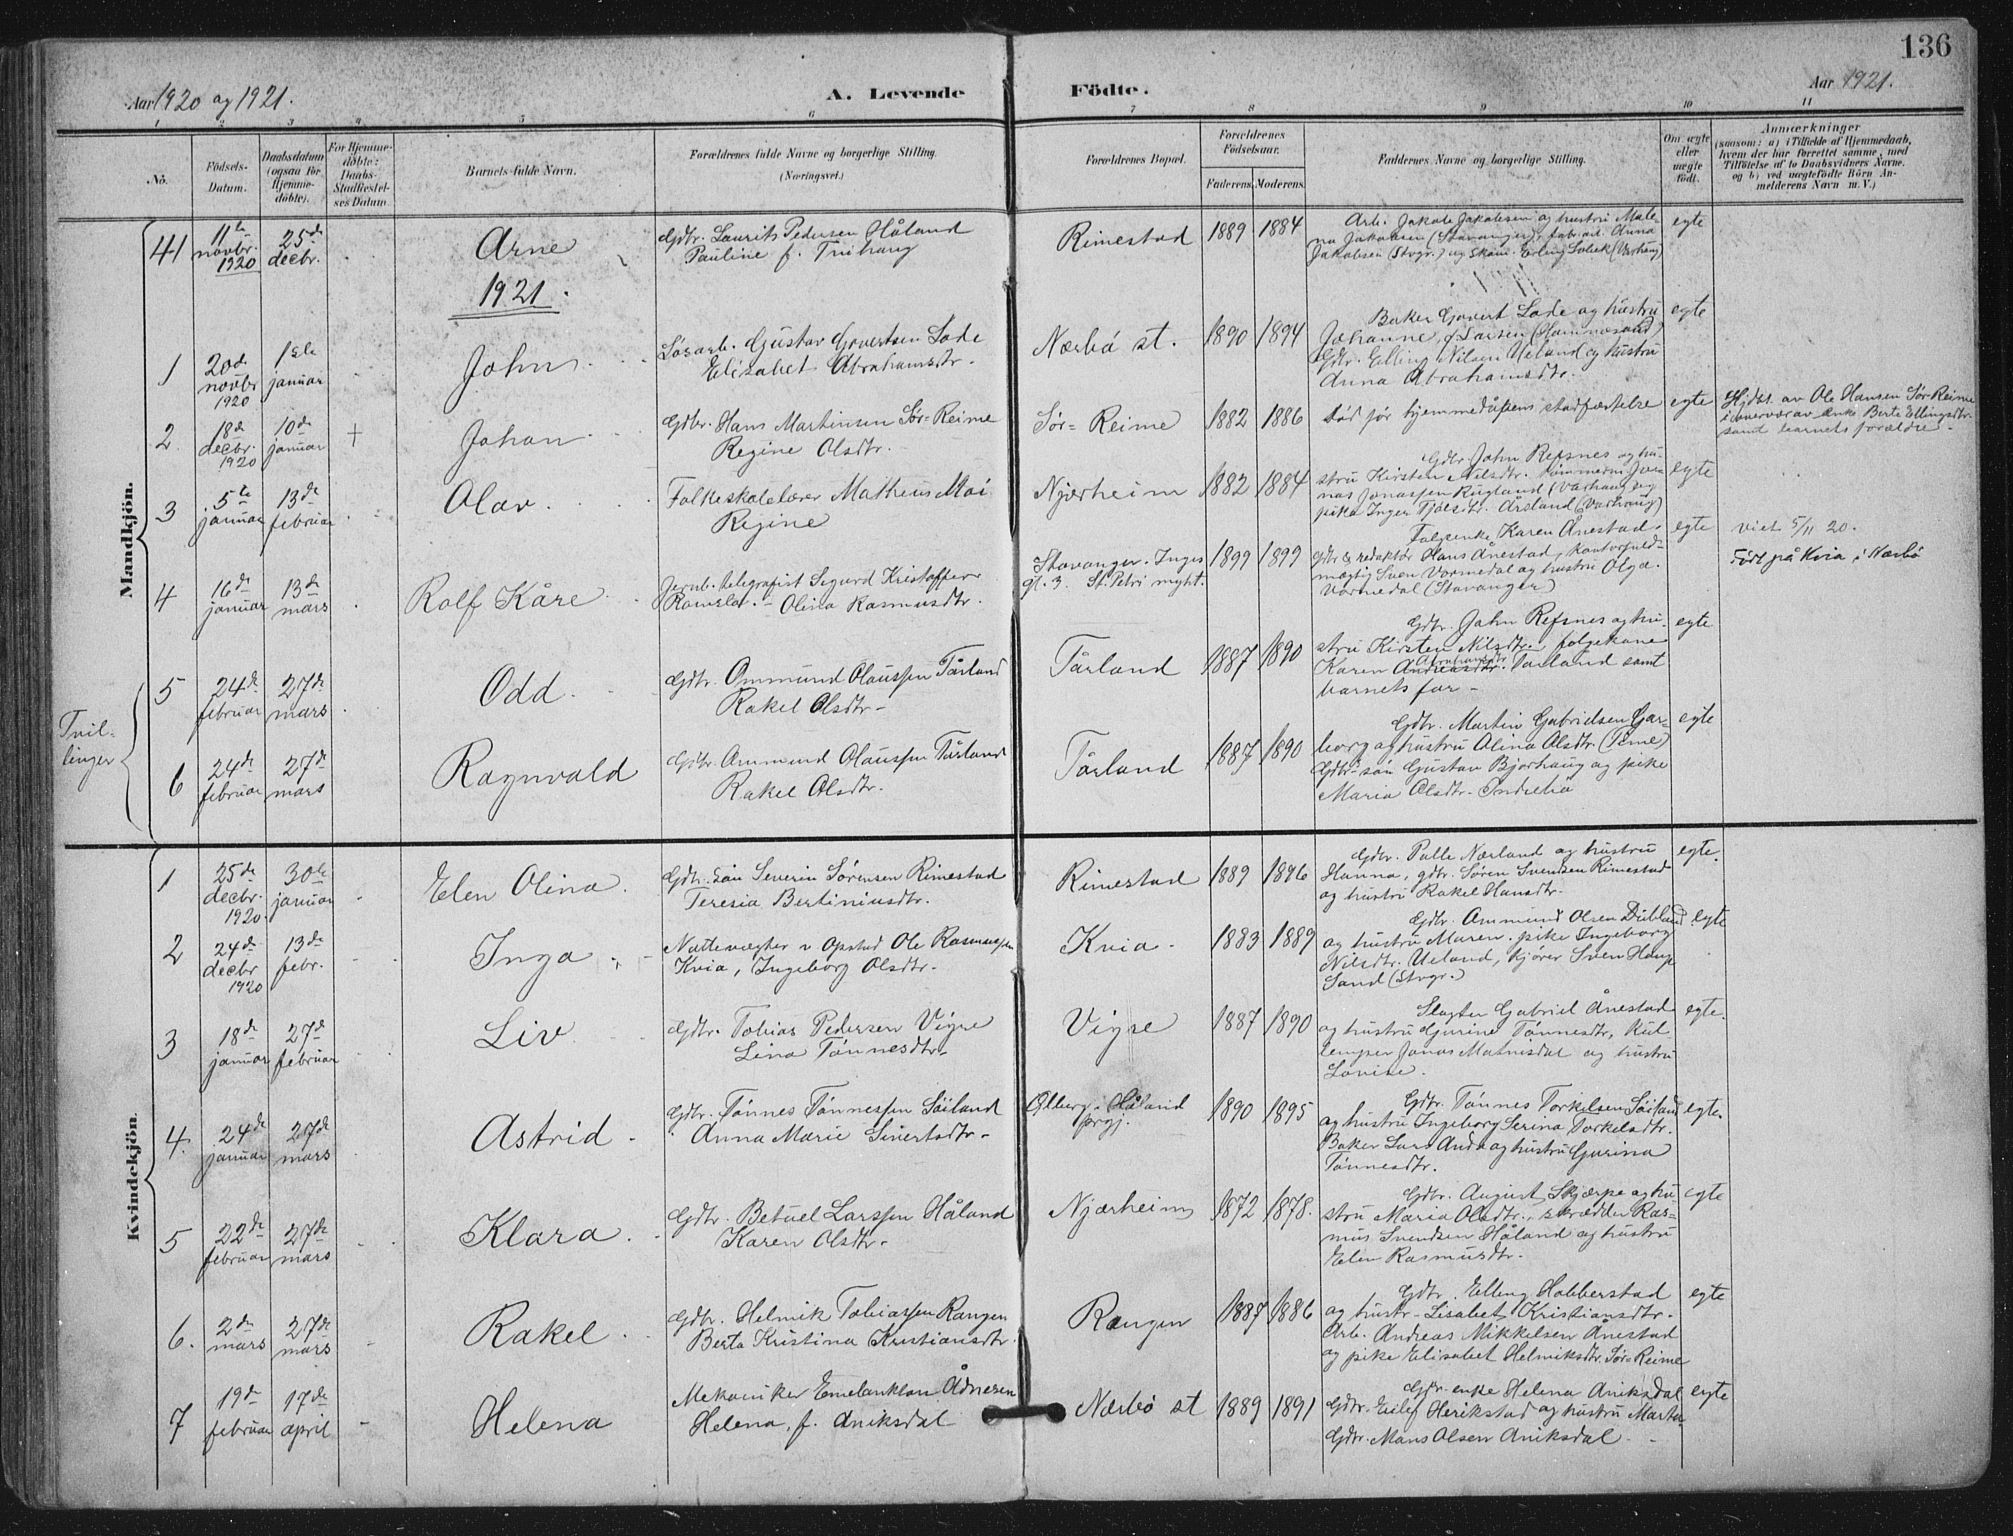 136
Aar 1920 og 1921.
A. Levende Födte.
Aar 1921.
1 2 3 4 5 6 7 8 9 10 11
No.
Födsels-
Datum.
Daabsdatum
(ogsaa for
Hjemme-
döbte).
For Hjemme-
döbte:
Daabs-
Stadfæstel-
ses Datum.
Barnets fulde Navn.
Forældrenes fulde Navne og borgerlige Stilling.
(Næringsvei.)
Forældrenes Bopæl.
Forældrenes
Födselsaar.
Faderens. Moderens.
Faddernes Navne og borgerlige Stilling.
Om ægte
eller
uægte
födt.
Anmærkninger
(saasom: a) i Tilfælde af Hjemmedaab,
hvem der har forrettet samme, med
Tilföielse af to Daabsvidners Navne.
og b) ved uægtefödte Börn An-
melderens Navn m. V.)
Mandkjön.
41
11te
novbr.
1920
25de
decbr.
Arne
Gdbr. Laurits Pedersen Håland
Pauline f. Tuihaug
Rimestad
1889 1884
Arb. Jakob Jakobsen og hustru Male-
na Jakobsen (Stavanger), fabr.arb. Anna
Jakobsen (Stvgr.) og Skom. Erling Lobek (Varhaug)
egte
1921.
1
20de
novbr
1920
1ste
januar
John
Løsarb. Gustav Govertsen Lode
Elisabet Abrahamsdtr.
Nærbø st.
1890 1894
Baker Govert Lode og hustru
Johanne, f. Larsen (Hommersand)
Gdbr. Elling Nilsen Ueland og hustru
Anna Abrahamsdtr.
egte
2
18de
decbr.
1920
10de
januar
+
Johan
Gdbr. Hans Martinsen Sør-Reime
Regine Olsdtr.
Sør-Reime
1882 1886
Død før hjemmedåpens stadfæstelse
egte
Hjdøbt. av Ole Hansen Sør-Reime
i overvær av enke Berte Ellingsdtr.
samt barnets forældre.
3
5te
januar
13de
februar
Olav
Folkeskolelærer Matheus Moi
Regine
Njærheim
1882 1884
Gdbr. John Refsnes og hu-
stru Kirsten Nilsdtr. tømmerm. Jon-
nas Jonassen Rugland (Varhaug) og
pike Inger Tjølsdtr. Årsland (Varhaug)
egte
4
16de
januar
13de
mars
Rolf Kåre
Jernb. telegrafist Sigurd Kristoffer
Ramsla. - Olina Rasmusdtr.
Stavanger. Inges
gt. 3. St. Petri myht.
1899 1899
Folgeenke Karen Ånestad.
gdbr & redaktør Hans Ånestad, kontorfuld-
mægtig Sven Vormedal og hustru Olga
Vormedal (Stavanger)
egte
viet 5/11 20.
Født på Kvia i Nærbø
Tvil-
linger
5
24de
februar
27de
mars
Odd
Gdbr. Ommund Olaussen Tårland
Rakel Olsdtr.
Tårland
1887 1890
Gdbr. John Refsnes og hu-
stru Kirsten Nilsdtr., folgekone
Karen Abrahamsdtr. Tårland samt
barnets far.
egte
6
24de
februar
27de
mars
Ragnvald
Gdbr. Ommund Olaussen Tårland
Rakel Olsdtr.
Tårland
1887 1890
Gdbr. Martin Gabrielsen Gar-
borg og hustru Olina Olsdtr. (Time)
Gdbr.søn Gustav Bjorhaug og pike
Maria Olsdtr. Indrelia
egte
Kvindekjön.
1
25de
decbr.
1920.
30te
januar
Elen Olina
Gdbr. søn Severin Sørensen Rimestad
Teresia Bertiniusdtr.
Rimestad
1889 1896
Gdbr. Palle Nærland og hustru
Hanna, gdbr. Søren Svendsen Rimestad
og hustru Rakel Hansdtr.
egte.
2
24de
decbr
1920
13de
febr.
Inga
Nattevægter v. Opstad Ole Rasmussen
Kvia, Ingeborg Olsdtr.
Kvia
1883 1889
Gdbr. Ommund Olsen Dubland
og hustru Maren. pike Ingeborg
Nilsdtr. Ueland, kjører Sven Haug
Sand (Stvgr.)
egte
3
18de
januar
27de
februar
Liv
Gdbr. Tobias Pedersen Vigre
Lina Tønnesdtr.
Vigre
1887 1890
Slagter Gabriel Ånestad
og hustru Gurine Tønnesdtr, kul
lemper Jonas Malmisdal og hustru
Lovise.
egte.
4.
24de
januar
27de
mars
Astrid
Gdbr. Tønnes Tønnessen Søiland
Anna Marie Sivertsdtr.
Ølberg. Håland
prgj.
1890 1895
Gdbr. Tønnes Torkelsen Søiland
og hustru Ingeborg Serina Torkelsdtr.
Baker Lars Anda og hustru Gurina
Tønnesdtr.
egte.
5
22de
februar
27de
mars
Klara
Gdbr. Betuel Larssen Håland
Karen Olsdtr.
Njærheim
1872 1878.
Gdbr. August Skjærpe og hu
stru Maria Olsdtr., skrædder Ras-
mus Svendsen Håland og hustru
Elen Rasmusdtr.
egte
6.
2de
mars
27de
mars
Rakel
Gdbr. Helmik Tobiassen Rangen
Berta Kristina Kristiansdtr.
Rangen
1887 1886
Gdbr. Elling Hobberstad
og hustr. Lisabet Kristiansdtr.
Arb. Andreas Mikkelsen Ånestad
og pike Elisabet Helmiksdtr. Sør-Reime
egte
7
19de
februar
17de
april
Helena
Mekaniker Emelankton Ådnesen
Helena, f. Aniksdal
Nærbø st
1889 1891
Gbr. enke Helena Aniksdal
Gdbr. Eilef Herikstad og hustru Marta
Gdbr. Mons Olsen Aniksdal.
egte